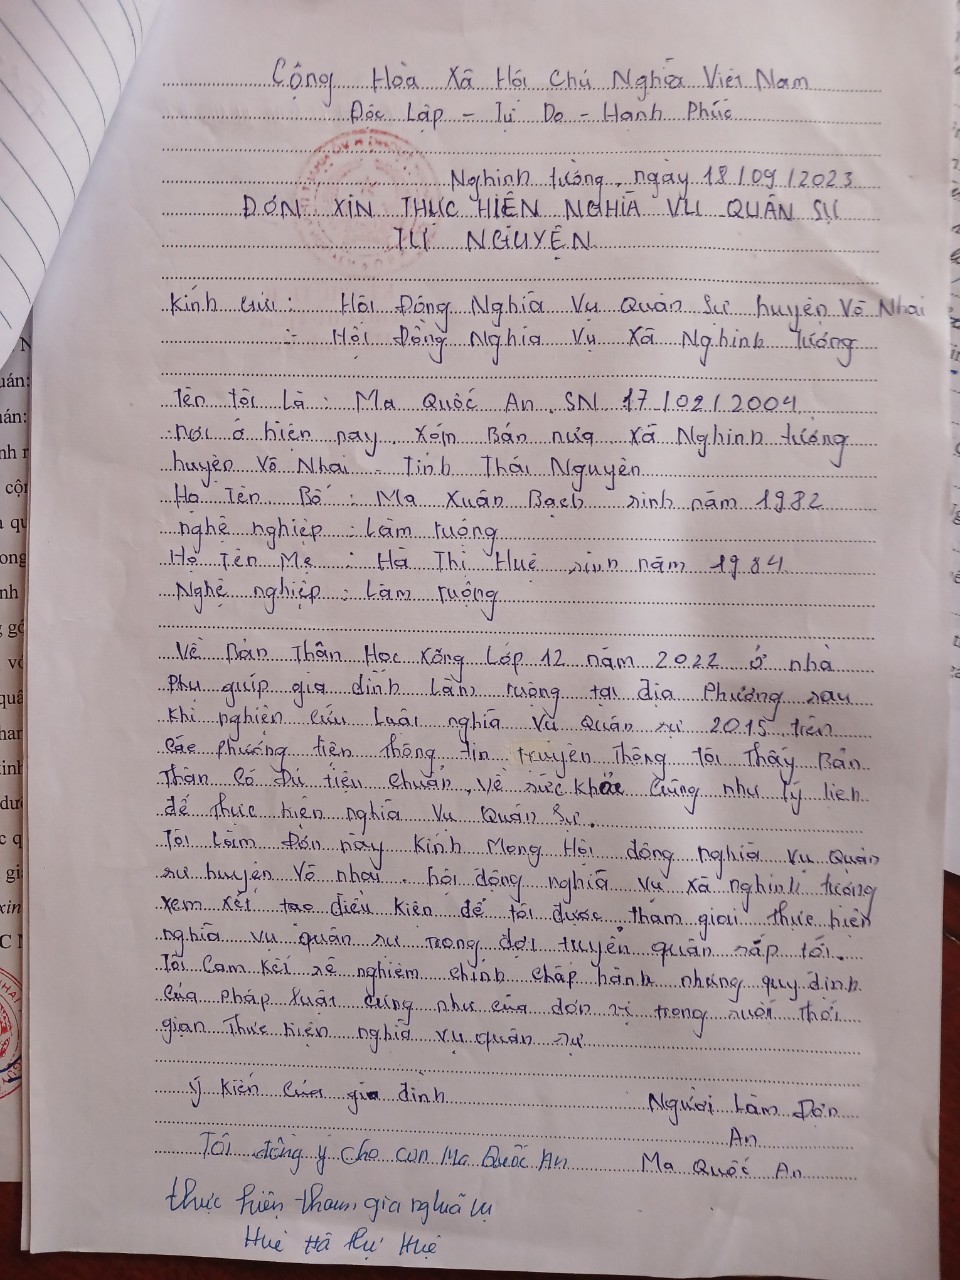 Cộng Hòa Xã Hội Chủ Nghĩa Việt Nam
Độc Lập - Tự Do - Hạnh Phúc
Nghinh tường, ngày 18/09/2023
ĐƠN XIN THỰC HIỆN NGHĨA VỤ QUÂN SỰ
TỰ NGUYỆN
Kính Gửi: Hội Đồng Nghĩa Vụ Quân Sự huyện Võ Nhai
: Hội Đồng Nghĩa Vụ Xã Nghinh tường
Tên tôi Là: Ma Quốc An, SN 17/02/2004
Nơi ở hiện nay, xóm Bản nưa Xã Nghinh tường
huyện Võ Nhai - Tỉnh Thái Nguyên
Họ Tên Bố: Ma Xuân Bạch sinh năm 1982
nghề nghiệp: Làm ruộng
Họ Tên Mẹ: Hà Thị Huệ sinh năm 1984
Nghề nghiệp: Làm ruộng
Về Bản Thân Học Xong Lớp 12 năm 2022 ở nhà
Phụ giúp gia đình Làm ruộng tại địa Phương sau
khi nghiên cứu Luật nghĩa vụ Quân sự 2015 trên
các phương tiện thông tin truyền Thông Tôi Thấy Bản
Thân Có Đủ tiêu chuẩn, về sức khỏe cũng như lý lịch
để thực hiện nghĩa Vụ Quân Sự.
Tôi Làm Đơn này Kính Mong Hội đồng nghĩa Vụ Quân
sự huyện Võ nhai, hội đồng nghĩa vụ xã nghinh tường
xem xét tạo điều kiện để tôi được tham giai thực hiện
nghĩa vụ quân sự trong đợt tuyển quân sắp tới.
Tôi Cam Kết sẽ nghiêm chỉnh chấp hành những quy định
của Pháp Luật cũng như của đơn vị trong suốt Thời
gian Thực hiện nghĩa vụ quân sự
ý kiến của gia đình
Người Làm Đơn
An
Tôi đồng ý Cho con Ma Quốc An
Ma Quốc An
thực hiện tham gia nghĩa vụ
Huệ Hà Thị Huệ